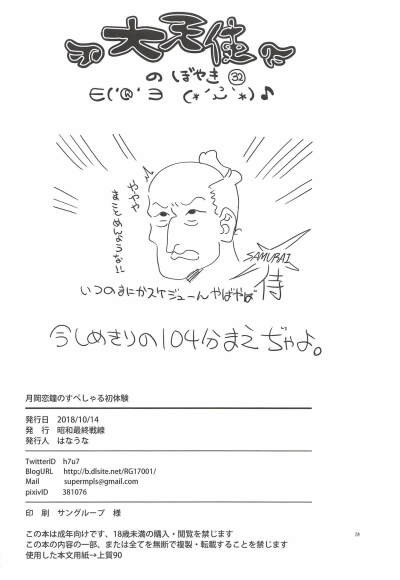 大天使
のぼやき㉜
今しめきりの104分まえぢゃよ。
SAMURAI
侍
月岡恋鐘のすぺしゃる初体験
発行日 2018/10/14
発 行 昭和最終戦線
発行人 はなうな
TwitterID h7u7
BlogURL http://b.dlsite.net/RG17001/
Mail supermpls@gmail.com
pixivID 381076
印 刷 サングループ 様
この本は成年向けです、18歳未満の購入・閲覧を禁じます
この本の内容の一部、または全てを無断で複製・転載することを禁じます
使用した本文用紙→上質90
28